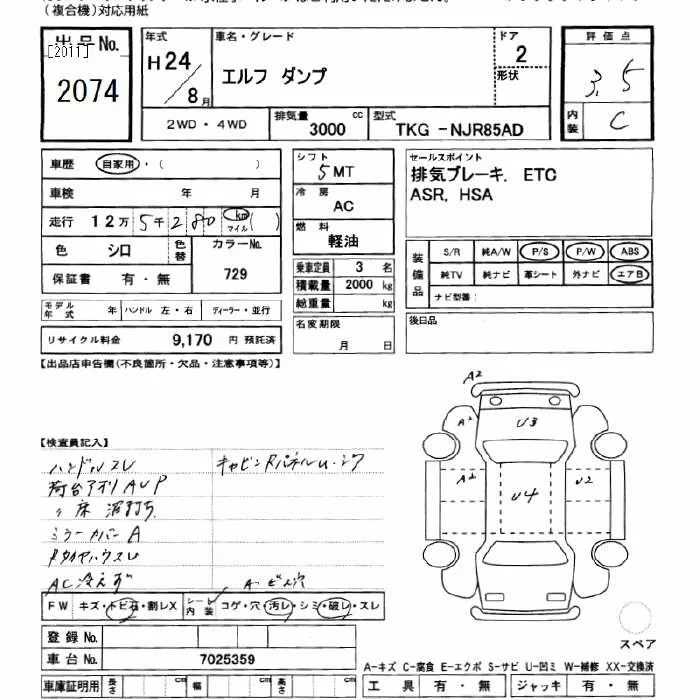 (複合機)対応用紙
出品No.
[2011]
2074
年式 H24/8月
車名・グレード
エルフ ダンプ
ドア 2
形状
評価点
3.5
内装 C
2WD・4WD
排気量 3000 cc
型式 TKG-NJR85AD
車歴 自家用・( )
車検 年 月
走行 12万5千280 km マイル( )
色 シロ
色替
カラーNo. 729
保証書 有・無
モデル年式 年 ハンドル 左・右 ディーラー・並行
リサイクル料金 9,170 円 預託済
シフト 5MT
冷房 AC
燃料 軽油
乗車定員 3 名
積載量 2000 kg
総重量 kg
名変期限
月 日
セールスポイント
排気ブレーキ, ETC
ASR, HSA
装備品
S/R 純A/W P/S P/W ABS
純TV 純ナビ 革シート 外ナビ エアB
ナビ型番:
後日品
【出品店申告欄(不良箇所・欠品・注意事項等)】
【検査員記入】
ハンドルスレ
荷台アオリAUP
〃床 沼打ち
ミラーカバーA
AC冷えず
A2
A2
U3
A2
U4
U2
FW キズ・トビ石・割レX
シート内装 コゲ・穴・汚レ・シミ・破レ・スレ
登録No.
車台No. 7025359
車庫証明用 長さ cm 幅 cm 高さ cm
スペア
A-キズ C-腐食 E-エクボ S-サビ U-凹ミ W-補修 XX-交換済
工具 有・無 ジャッキ 有・無